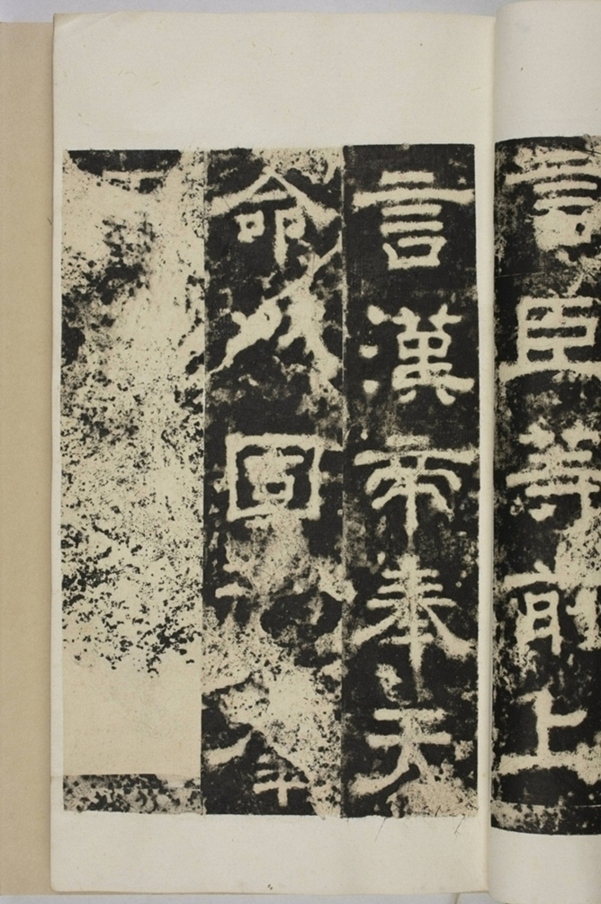 言臣等前上
言漢帝奉天
命以固